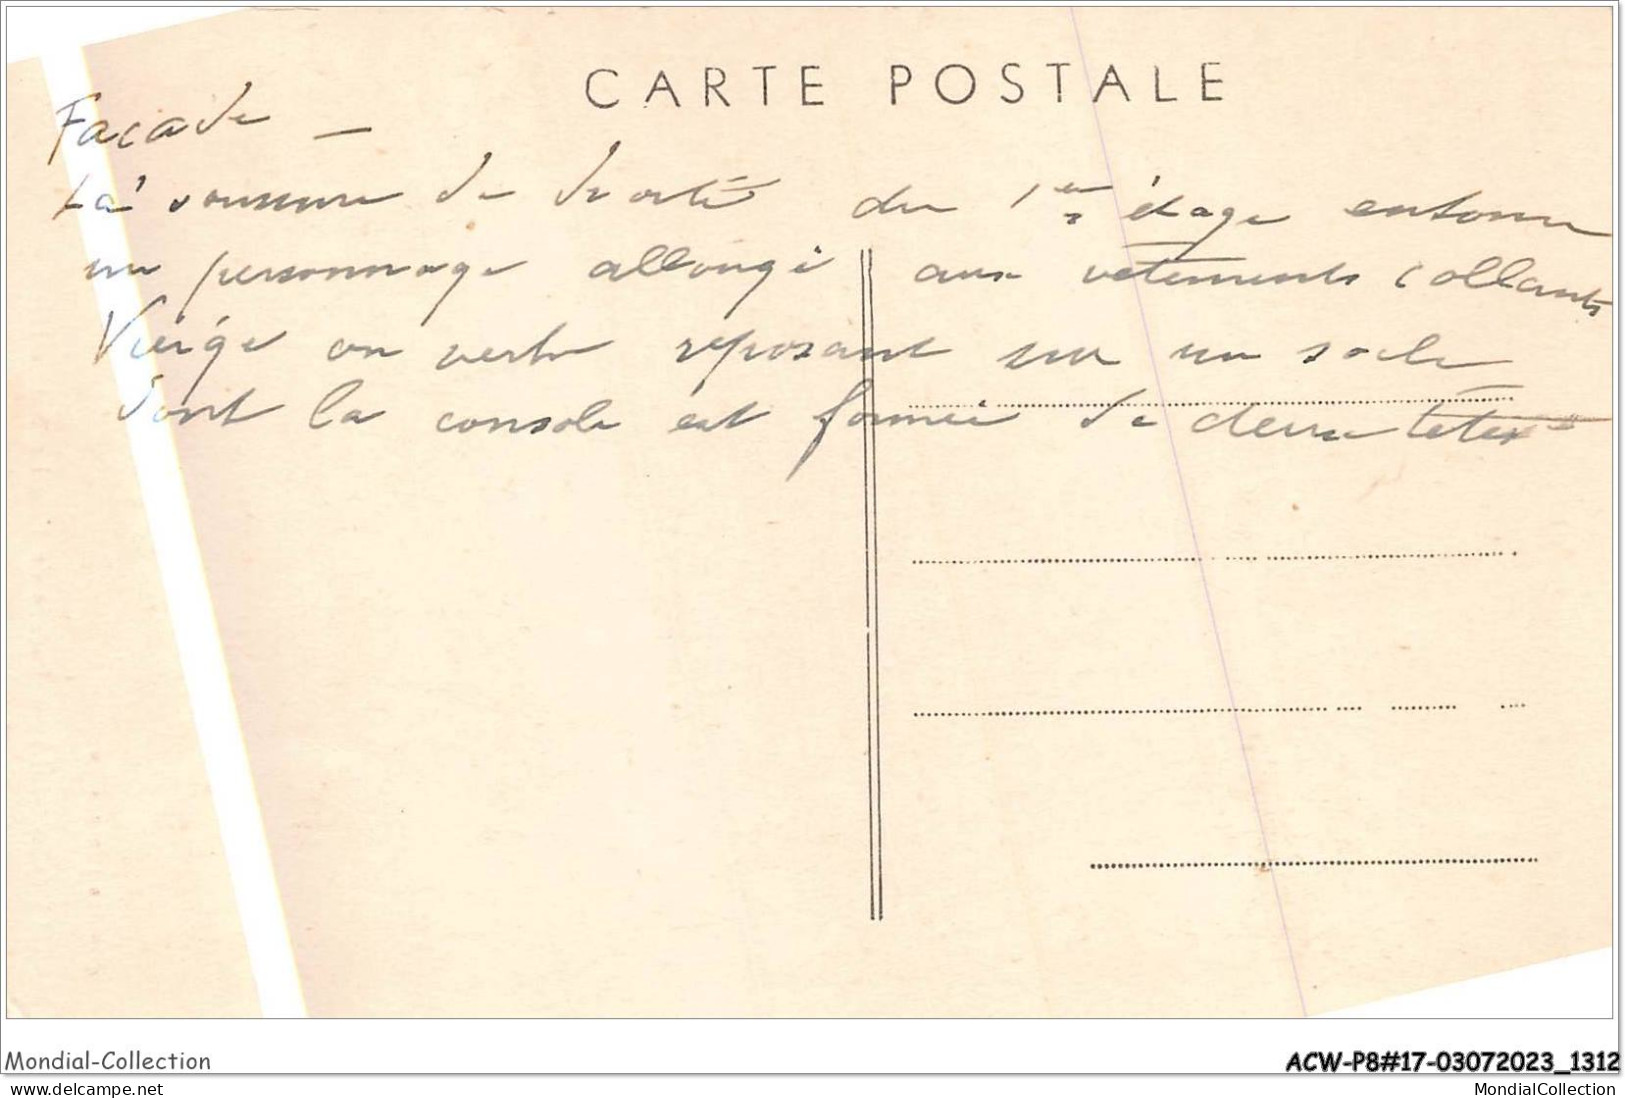 CARTE POSTALE
Façade –
La voussure de droite du 1er étage entoure
un personnage allongé aux vêtements collants
Vierge ou reposant sur un socle
dont la console est formée de deux têtes
Mondial-Collection
ACW-P8#17-03072023_1312
www.delcampe.net
MondialCollection